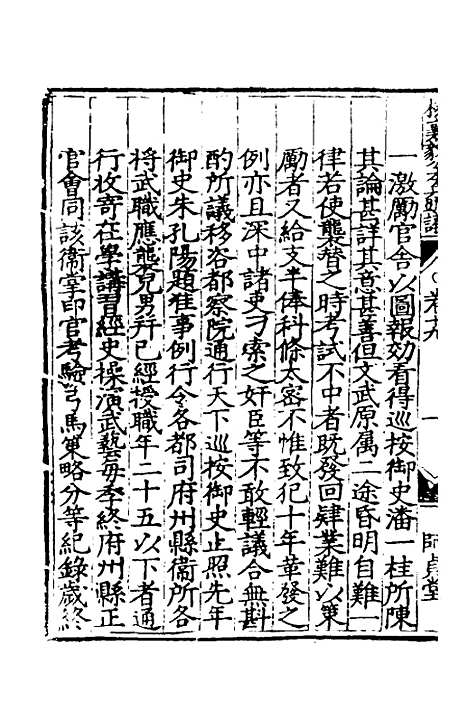 一激勵官舍以圖報効看得巡按御史潘一桂所陳
其論甚詳其意甚善但文武原属二途昏明自難一
律若使襲替之時考試不中者既發回肄業難以策
勵者又給支半俸科條太密不惟致犯十年革發之
例亦且深中諸吏刁索之奸臣等不敢輕議合無斟
酌所議移咨都察院通行天下巡按御史止照先年
御史朱孔陽題准事例行令各都司府州縣衛所各
將武職應襲兒男并已經授職年二十五以下者通
行收寄在學講習經史操演武藝每季終府州縣正
官會同該衛掌印官考驗弓馬策略分等紀錄歲終
卷九
一
師貞堂